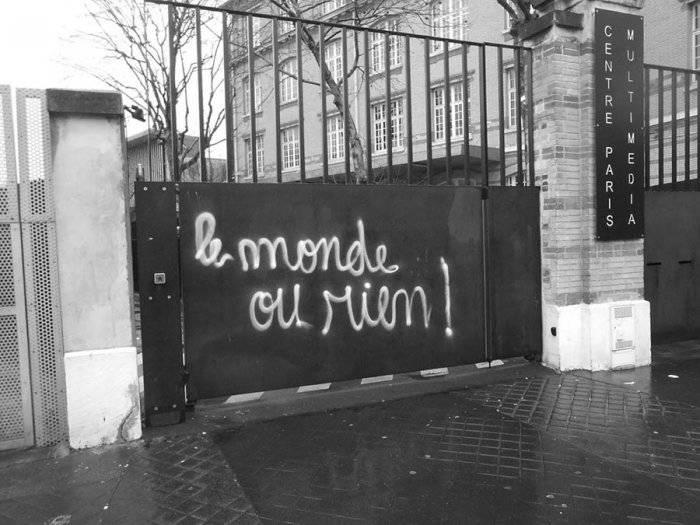 le monde
ou rien!
CENTRE PARIS
MULTIMEDIA